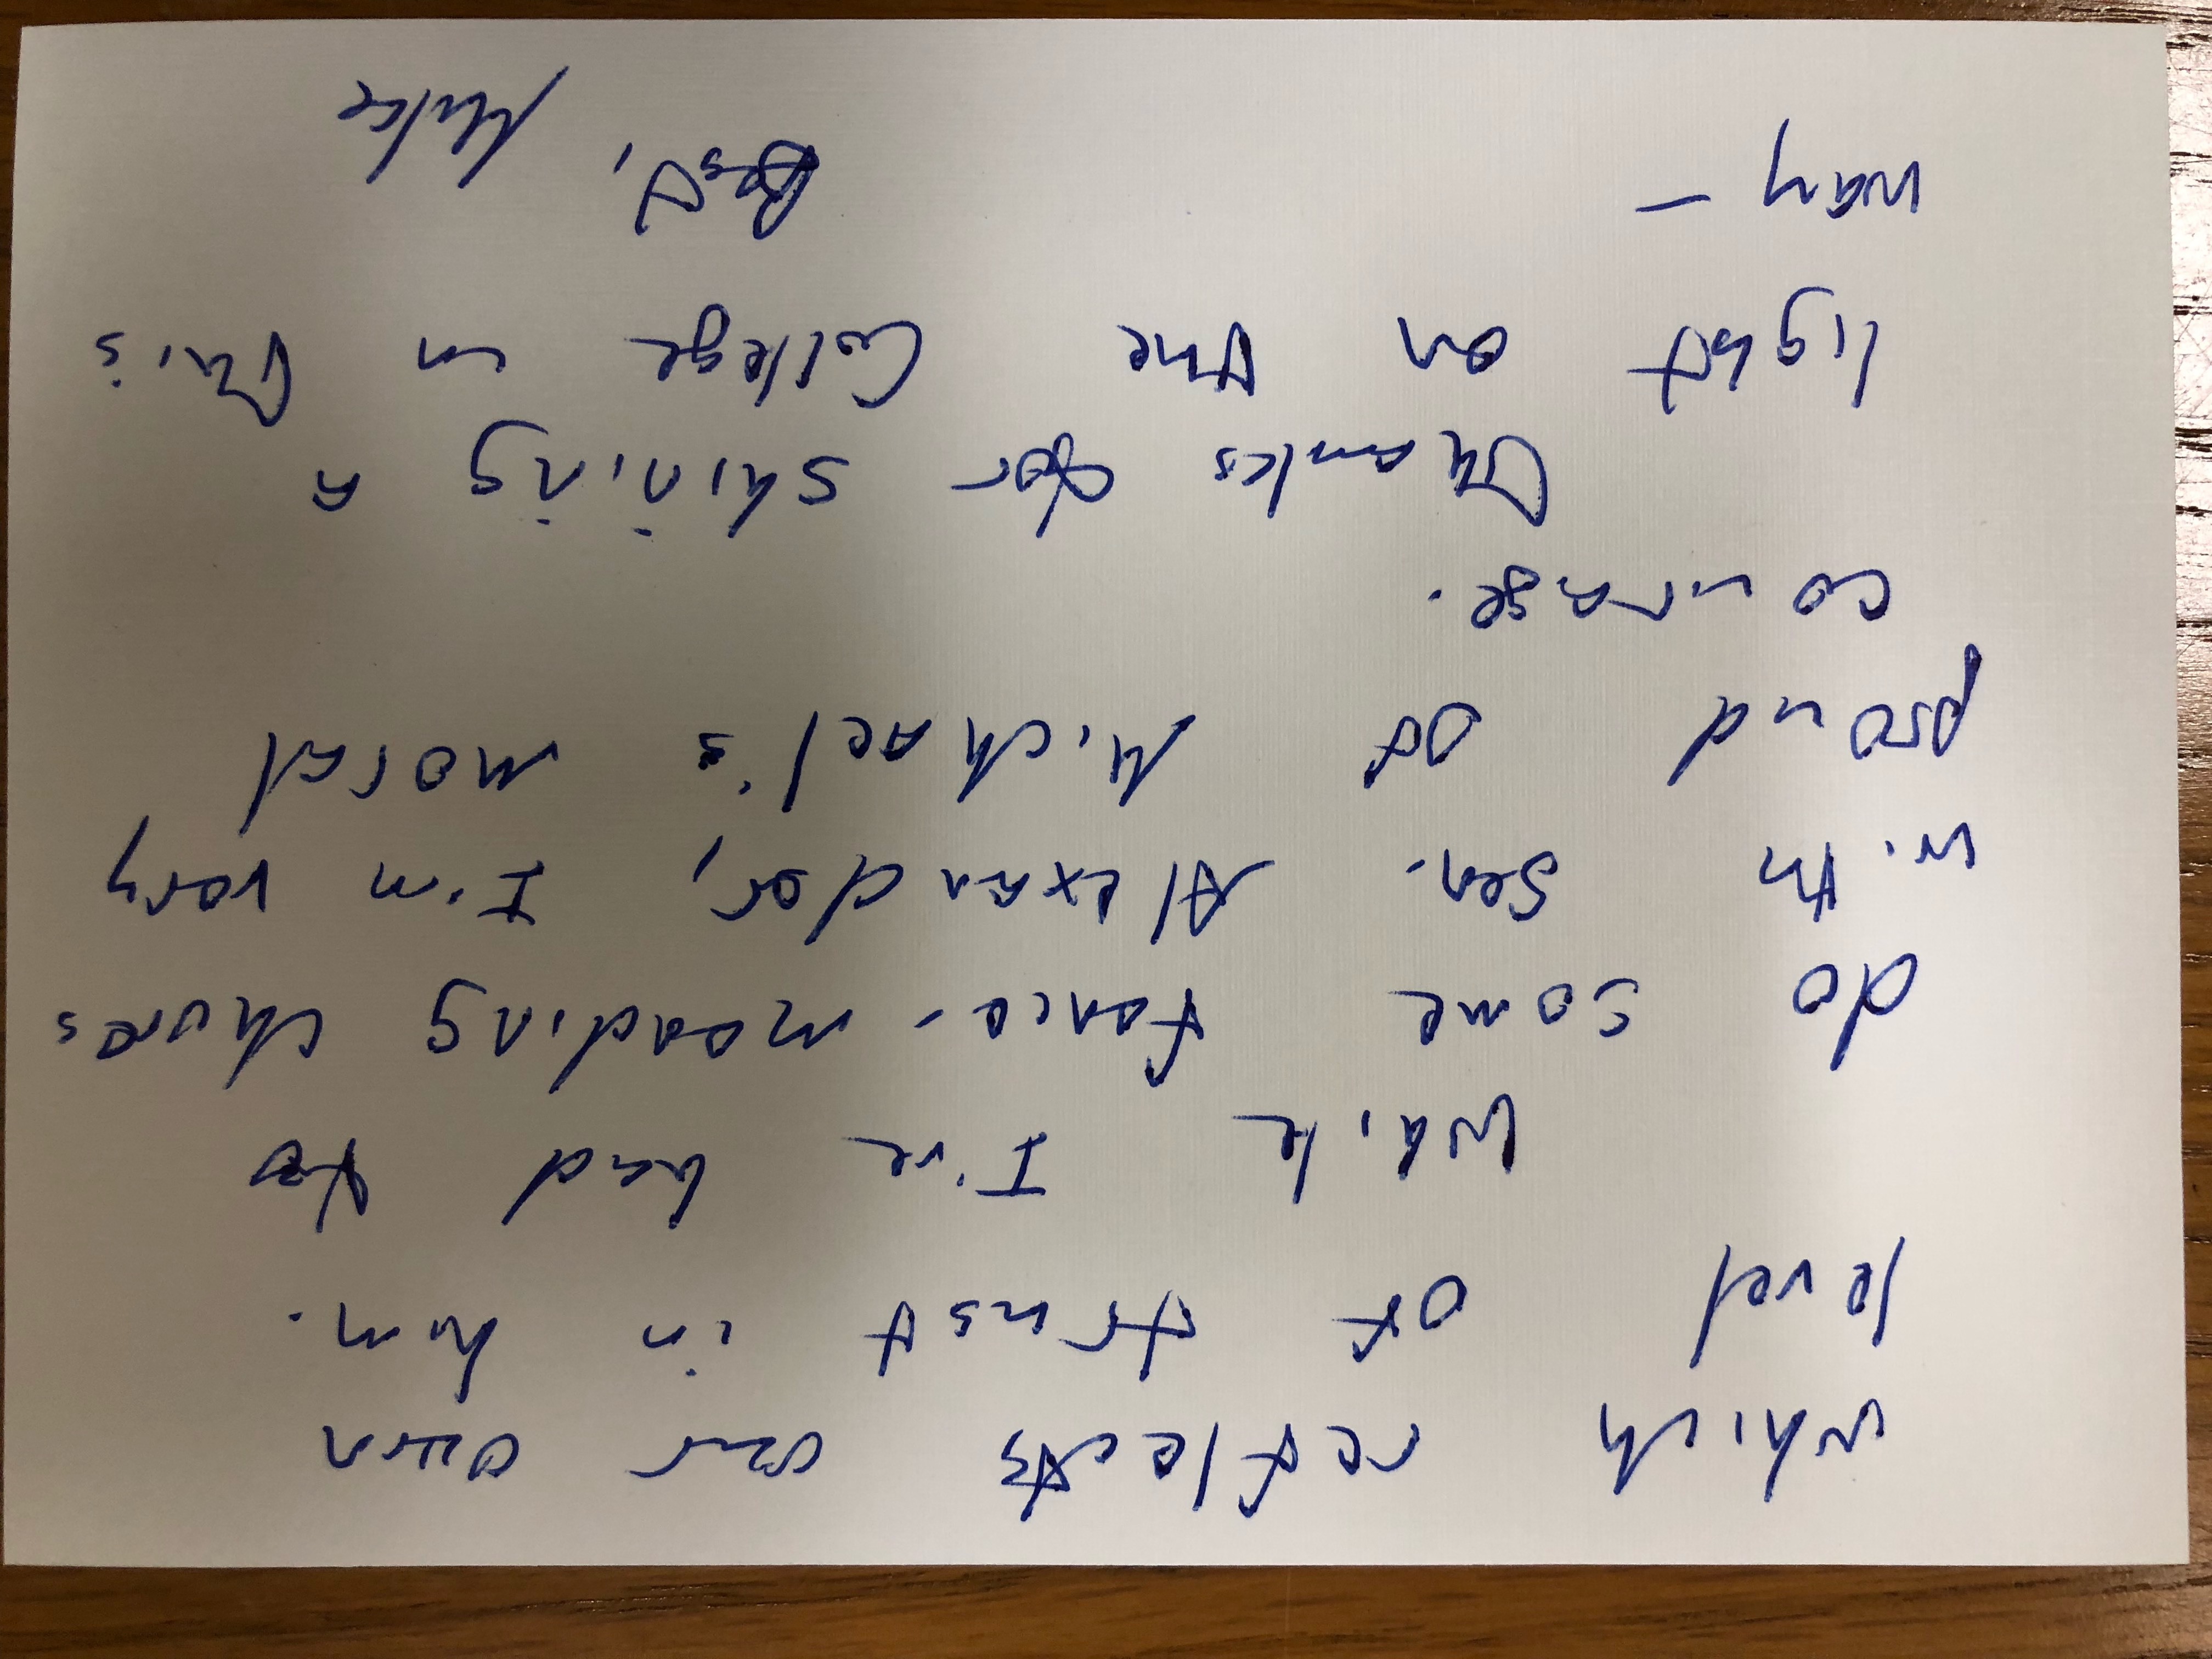 which reflects our own
level of trust in him.
While I've had to
do some fence-mending chores
with Sen. Alexander, I'm very
proud of Michael's moral
courage.
Thanks for shining a
light on the College in this
way –
Best,
Mike